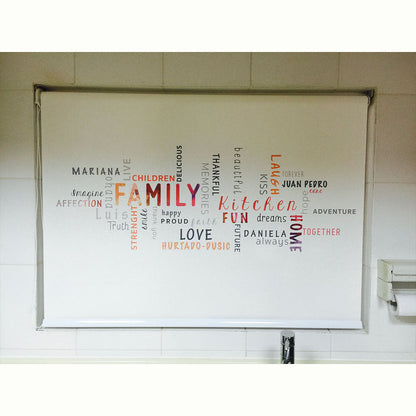 MARIANA
LIVE
CHILDREN
DELICIOUS
THANKFUL
MEMORIES
beautiful
LAUGH
KISS
FOREVER
JUAN PEDRO
care
Imagine
AFFECTION
FAMILY
Kitchen
hope
ADVENTURE
Luis
Truth
STRENGHT
smile
happy
PROUD
faith
FUN
dreams
HOME
LOVE
FUTURE
DANIELA
always
TOGETHER
HURTADO-DUSIO